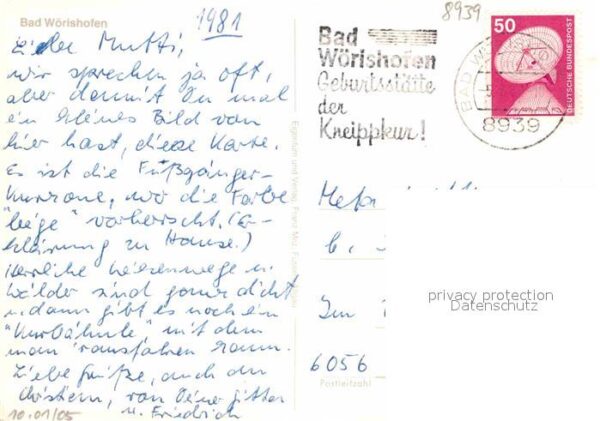 Bad Wörishofen
1981
8939
Liebe Mutti,
wir sprechen ja oft,
aber damit Du mal
ein kleines Bild von
hier hast, diese Karte.
Es ist die Fußgänger-
Kurzone, wo die Farbe
"beige" vorherrscht. (Er-
klärung zu Hause.)
Herrliche Wiesenwege u.
Wälder sind ganz dicht
u. dann gibt es noch ein
"Kurbähnle" mit dem
man rausfahren kann.
Liebe Grüße, auch an
von Deiner
u. Friedrich
10.01/05
Bad
Wörishofen
Geburtsstätte
der
Kneippkur!
50
DEUTSCHE BUNDESPOST
BAD
8939
Eigentum und Verlag
Meta
6056
Postleitzahl
privacy protection
Datenschutz